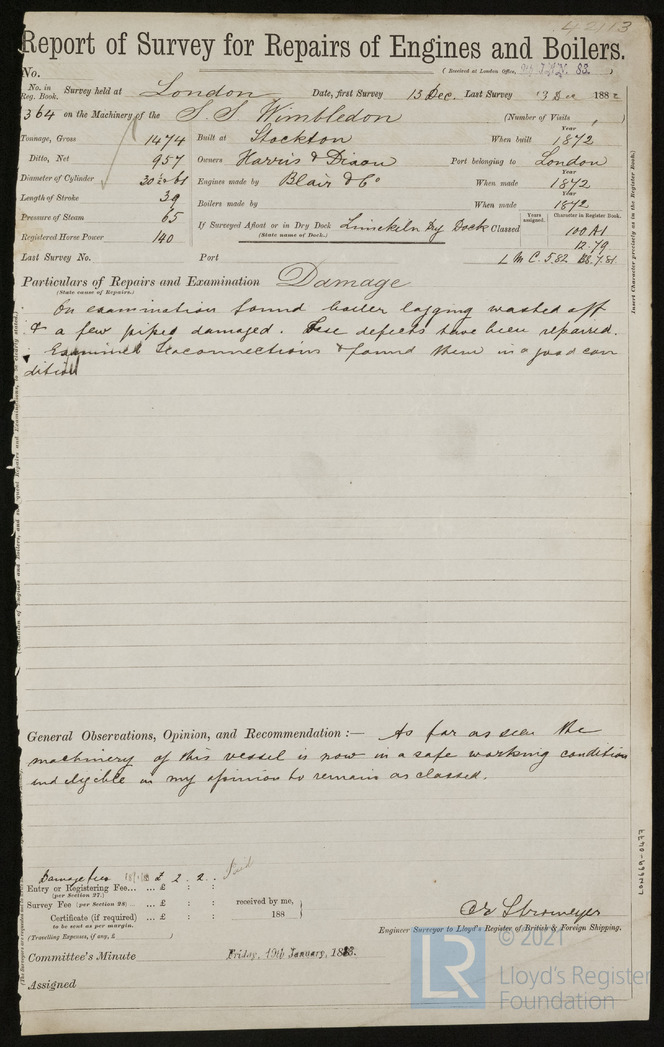 42113
Report of Survey for Repairs of Engines and Boilers.
No. (Received at London Office, JAN. 83 )
No. in Reg. Book. Survey held at London Date, first Survey 13 Dec. Last Survey 13 Dec 1882
364 on the Machinery of the S. S Wimbledon (Number of Visits 1 )
Tonnage, Gross 1474 Built at Stockton When built Year 1872
Ditto, Net 957 Owners Harris & Dixon Port belonging to London
Diameter of Cylinder 30" & 61 Engines made by Blair & Co When made Year 1872
Length of Stroke 39 Boilers made by When made Year 1872
Pressure of Steam 65 If Surveyed Afloat or in Dry Dock Limekiln Dry Dock Classed Years assigned. Character in Register Book. 100A1
Registered Horse Power 140 (State name of Dock.) 12.79
Last Survey No. Port L M C. 5.82 7.81
Insert Character precisely as in the Register Book.)
Particulars of Repairs and Examination Damage
(State cause of Repairs.)
On examination found boiler lagging washed off
& a few pipes damaged. These defects have been repaired.
Examined Seaconnections & found them in a good con
dition
General Observations, Opinion, and Recommendation :— As far as seen the
machinery of this vessel is now in a safe working condition
and eligible in my opinion to remain as classed.
Damage fee £ 2 . 2 . .
Entry or Registering Fee... ... £ : :
(per Section 27.)
Survey Fee (per Section 28) ... ... £ : : received by me,
Certificate (if required) ... £ : : 188
to be sent as per margin.
(Travelling Expenses, if any, £ )
C E Stromeyer
Engineer Surveyor to Lloyd's Register of British & Foreign Shipping.
Committee's Minute Friday, 19th January, 1883.
Assigned
LON669-0477
LR
© 2021
Lloyd's Register
Foundation